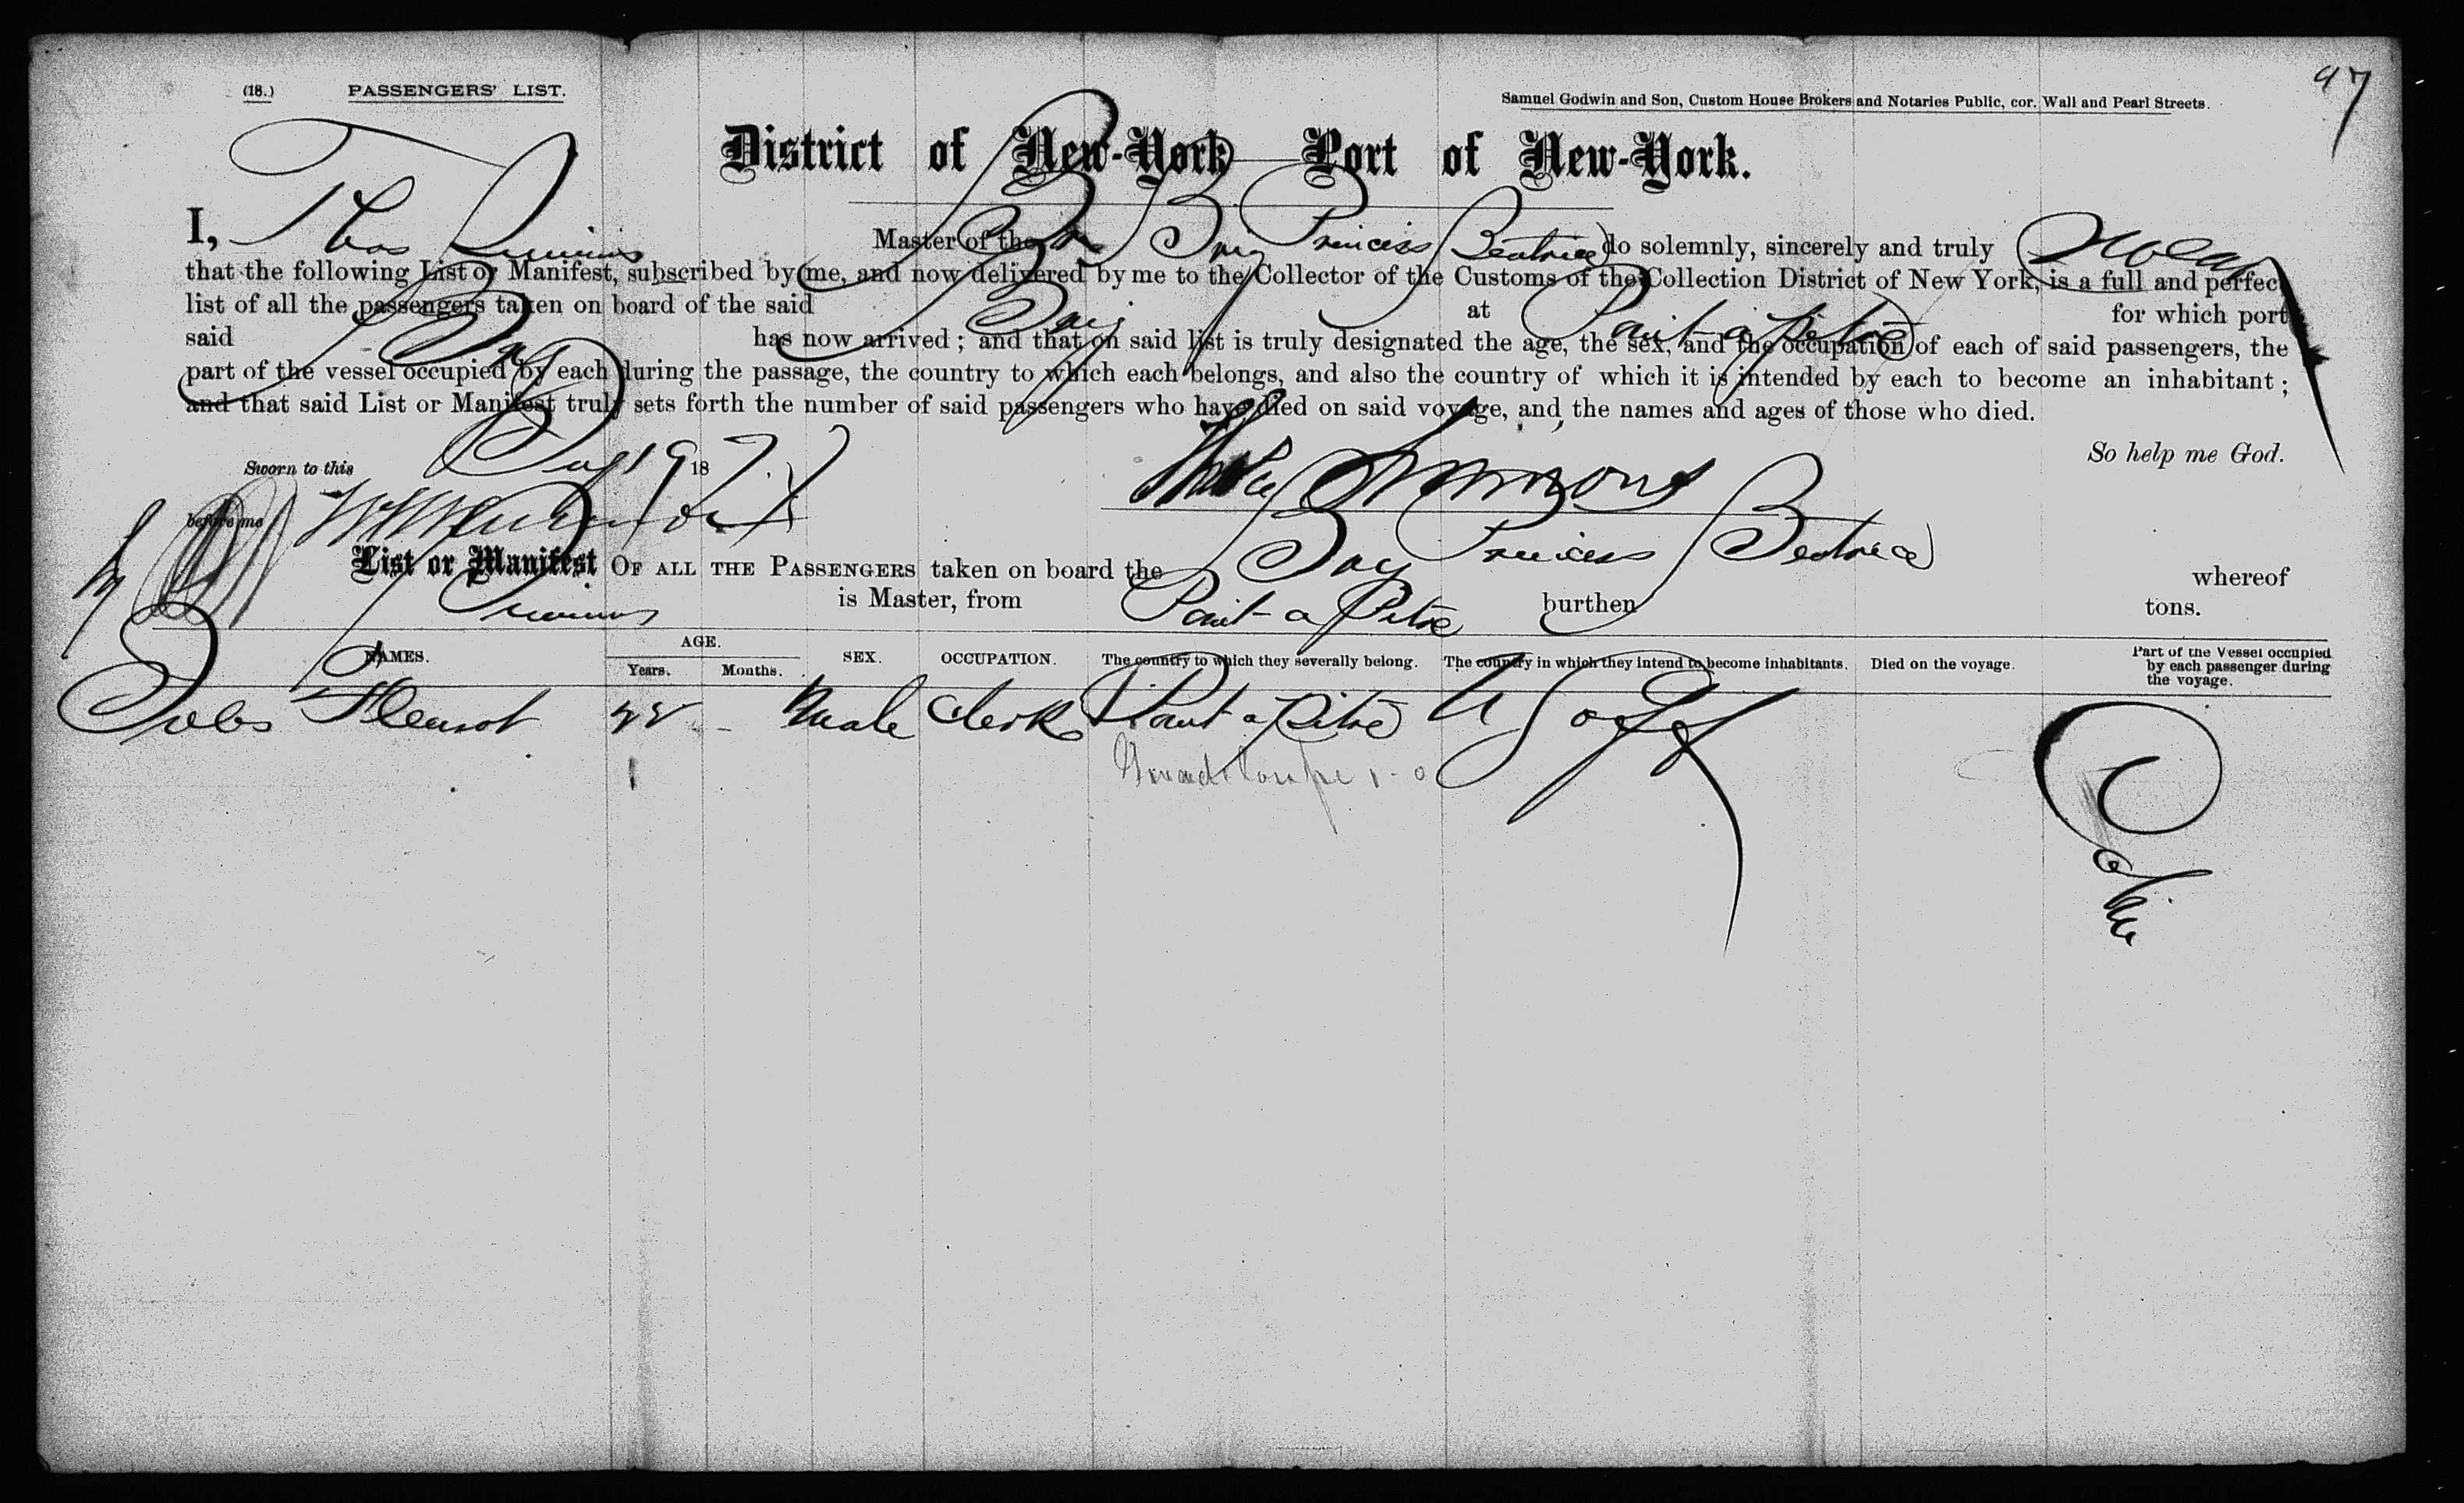 97
(18.) PASSENGERS' LIST.
Samuel Godwin and Son, Custom House Brokers and Notaries Public, cor. Wall and Pearl Streets.
District of New-York Port of New-York.
I, Thos Simmons Master of the Br Brig Princess Beatrice do solemnly, sincerely and truly swear
that the following List or Manifest, subscribed by me, and now delivered by me to the Collector of the Customs of the Collection District of New York, is a full and perfect
list of all the passengers taken on board of the said Brig at Point a Petre for which port
said Brig has now arrived; and that on said list is truly designated the age, the sex, and the occupation of each of said passengers, the
part of the vessel occupied by each during the passage, the country to which each belongs, and also the country of which it is intended by each to become an inhabitant;
and that said List or Manifest truly sets forth the number of said passengers who have died on said voyage, and the names and ages of those who died.
So help me God.
Sworn to this 9 1877
Simmons
before me
List or Manifest OF ALL THE PASSENGERS taken on board the Brig Princess Beatrice whereof
Simmons is Master, from Point a Petre burthen tons.
NAMES. AGE. Years. Months. SEX. OCCUPATION. The country to which they severally belong. The country in which they intend to become inhabitants. Died on the voyage. Part of the Vessel occupied by each passenger during the voyage.
22 - Male Clerk Point a Petre U S of A Cabin
Guadeloupe